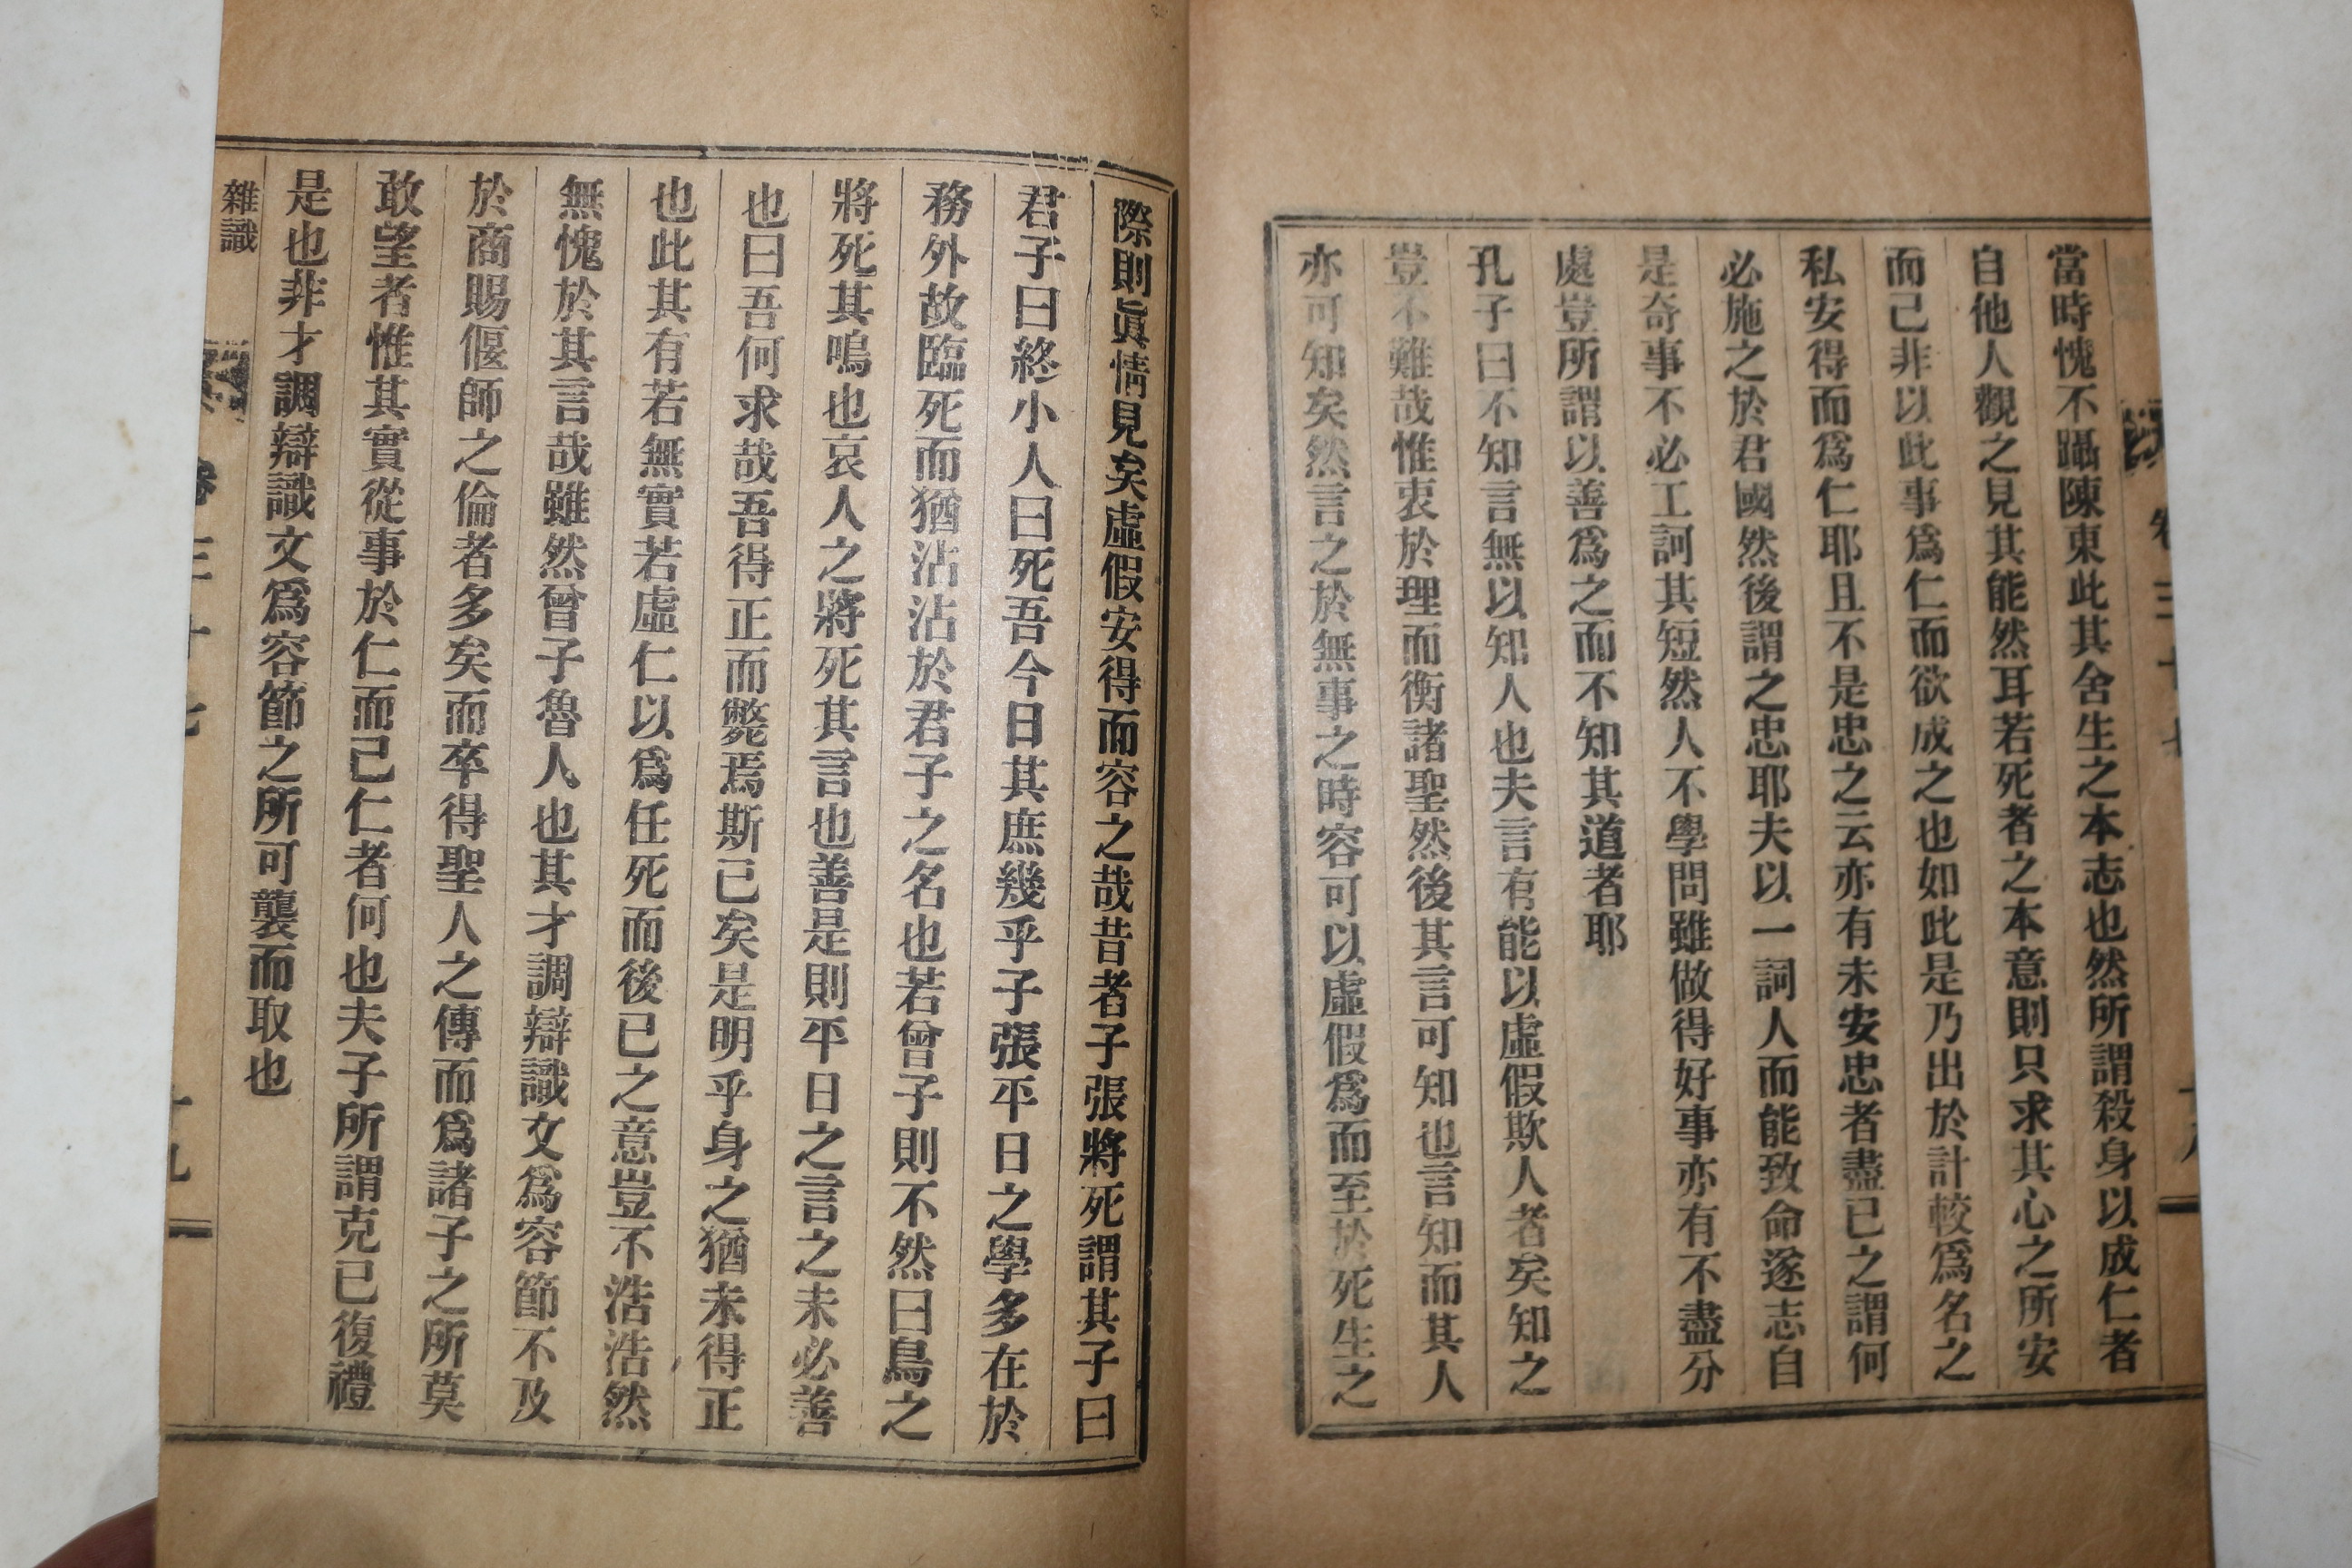 當時愧不躡陳東此其舍生之本志也然所謂殺身以成仁者
自他人觀之見其能然耳若死者之本意則只求其心之所安
而己非以此事爲仁而欲成之也如此是乃出於計較爲名之
私安得而爲仁耶且不是忠之云亦有未安忠者盡已之謂何
必施之於君國然後謂之忠耶夫以一詞人而能致命遂志自
是奇事不必工訶其短然人不學問雖做得好事亦有不盡分
處豈所謂以善爲之而不知其道者耶
孔子曰不知言無以知人也夫言有能以虛假欺人者矣知之
豈不難哉惟衷於理而衡諸聖然後其言可知也言知而其人
亦可知矣然言之於無事之時容可以虛假爲而至於死生之
際則眞情見矣虛假安得而容之哉昔者子張將死謂其子曰
君子曰終小人曰死吾今日其庶幾乎子張平日之學多在於
務外故臨死而猶沾沾於君子之名也若曾子則不然曰鳥之
將死其鳴也哀人之將死其言也善是則平日之言之未必善
也曰吾何求哉吾得正而斃焉斯已矣是明乎身之猶未得正
也此其有若無實若虛仁以爲任死而後已之意豈不浩浩然
無愧於其言哉雖然曾子魯人也其才調辯識文爲容節不及
於商賜偃師之倫者多矣而卒得聖人之傳而爲諸子之所莫
敢望者惟其實從事於仁而己仁者何也夫子所謂克已復禮
是也非才調辯識文爲容節之所可襲而取也
雜識
卷三十七
十九